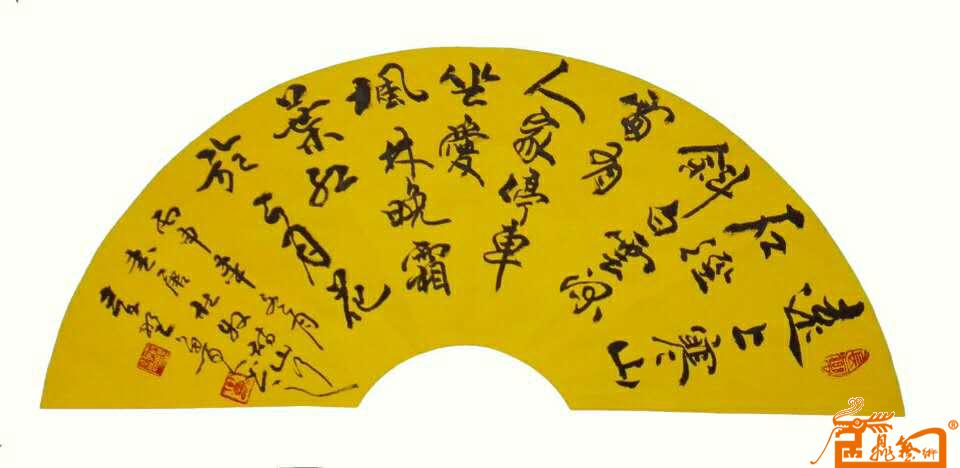 遠上寒山
石徑
斜白雲深
處有
人家停車
坐愛
楓林晚霜
葉紅
於二月花
丙申年
書唐杜牧詩山行